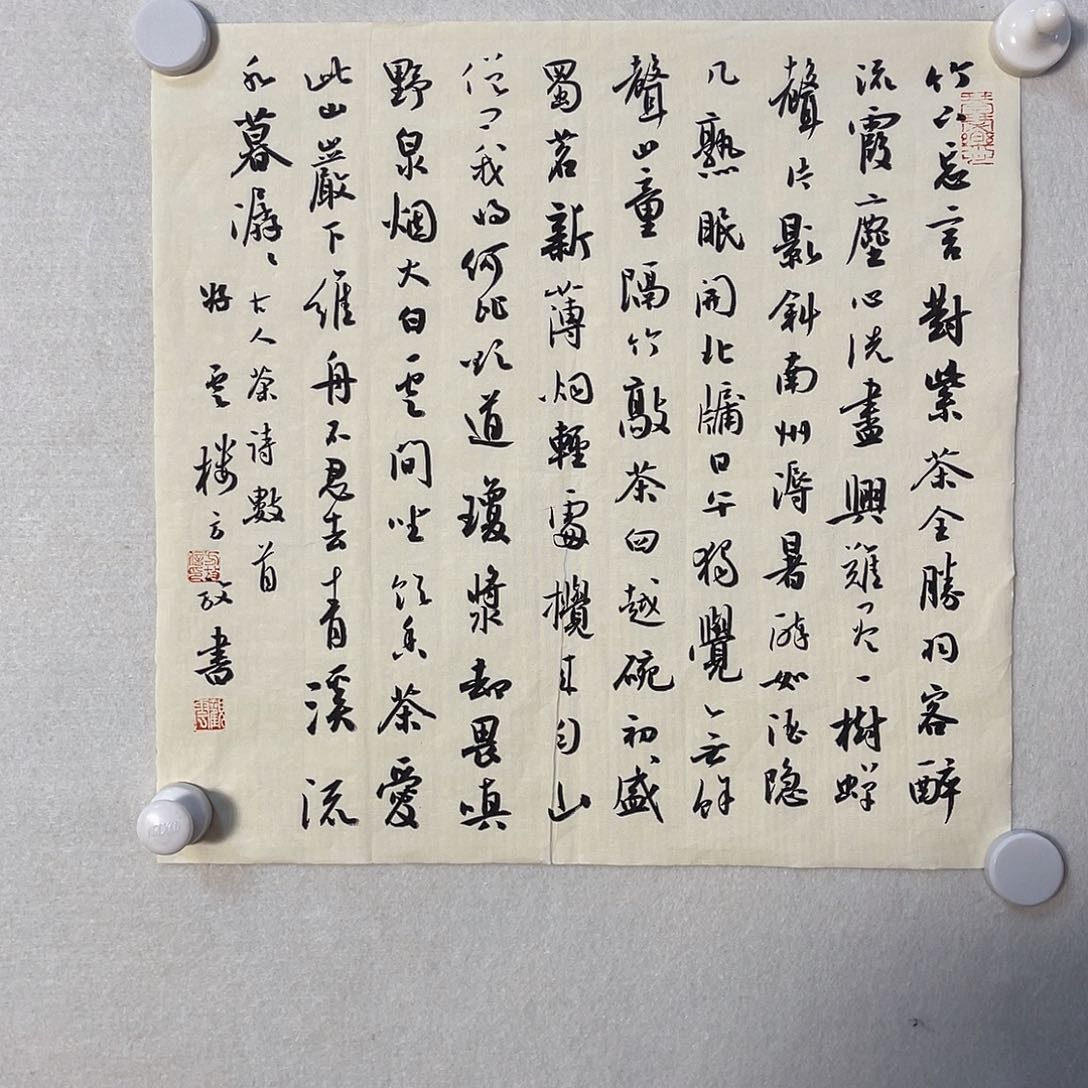 竹下忘言對紫茶全勝羽客醉
流霞塵心洗盡興難尽一樹蟬
聲片影斜南州溽暑醉如酒隐
几熟眠開北牖日午獨覺無餘
聲山童隔竹敲茶臼越碗初盛
蜀茗新薄烟輕處攪来匀山
僧问我将何比欲道瓊漿却畏嗔
野泉烟火白雲間坐饮香茶愛
此山巖下維舟不忍去青溪流
水暮潺々古人茶诗數首
雲楼書